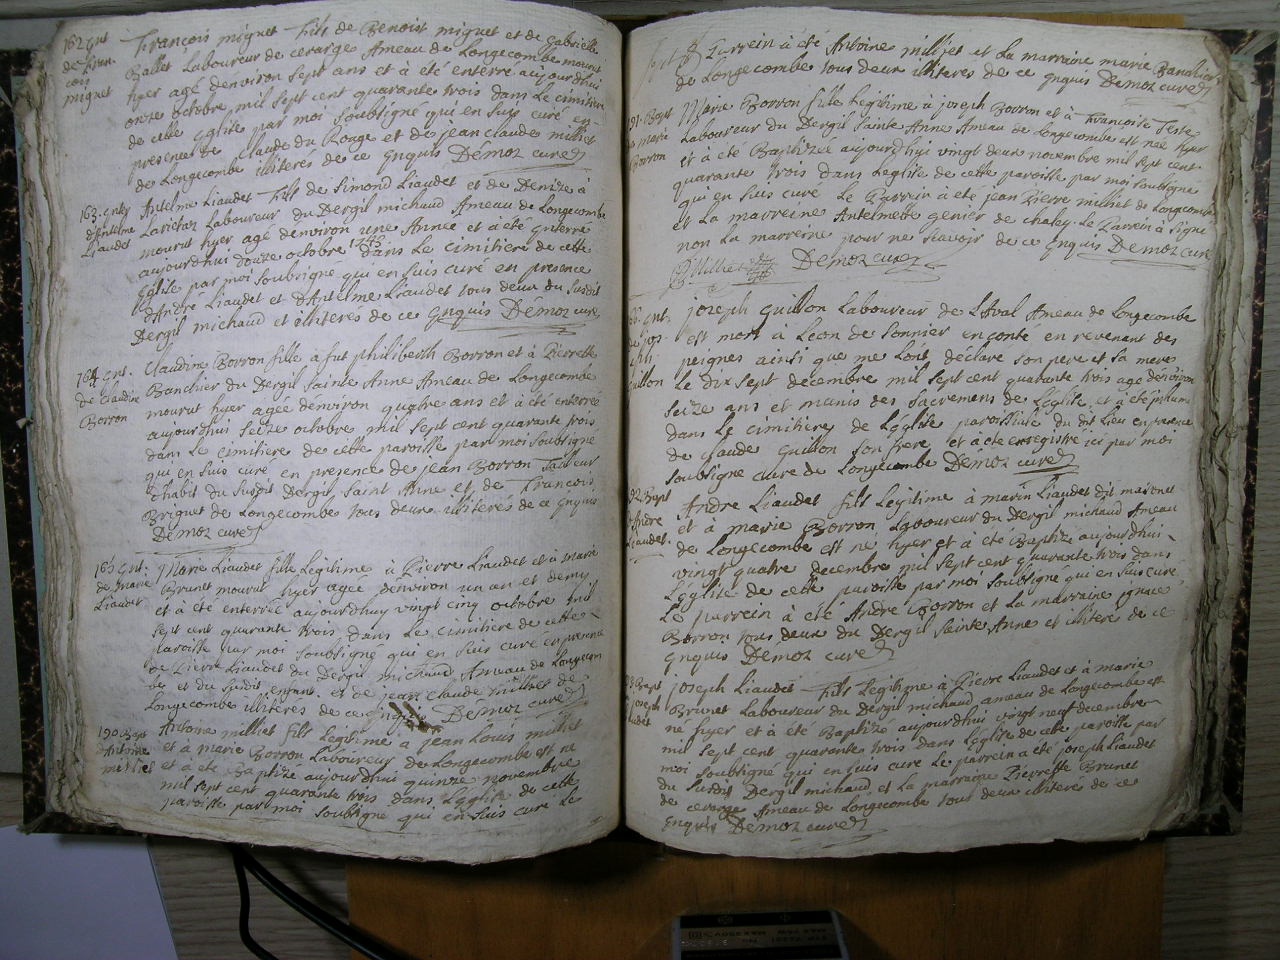 162 ent
de fran
cois
miguet
François miguet fils de Benoist miguet et de Gabrielle
Ballet Laboureur de cerarge Ameau de Longecombe mourut
hyer agé denviron sept ans et à été enterré aujourdhui
onze octobre mil sept cent quarante trois dans Le cimitiere
de cette Eglise par moi soubsigné qui en suis curé en
presence de Claude du Rouage et de jean claude milliet
de Longecombe illiteres de ce enquis Démoz curé
163. ent
d'Antelme
Liaudet
Antelme Liaudet fils de Simond Liaudet et de Denize à
Laboureur du Dergil michaud Ameau de Longecombe
mourut hyer agé denviron une Année et à été enterré
aujourdhui douze octobre 1743 dans Le cimitiere de cette
Eglise par moi soubsigné qui en suis curé en presence
d'André Liaudet et d'Antelme Liaudet tous deux du susdit
Dergil michaud et illiteres de ce enquis Démoz curé
164 ent.
de claudine
Borron
Claudine Borron fille à fut philiberth Borron et à Pierrette
Banchier du Dergil Sainte Anne Ameau de Longecombe
mourut hyer agée denviron quatre ans et à été enterrée
aujourdhui seize octobre mil sept cent quarante trois
dans Le cimitiere de cette paroisse par moi soubsigné
qui en suis curé en presence de jean Borron Tailleur
d'habit du susdit Dergil Saint Anne et de François
Briguet de Longecombe tous deux illiterés de ce enquis
Démoz curé
165 ent.
de marie
Liaudet
Marie Liaudet fille Legitime à Pierre Liaudet et à marie
Brunet mourut hyer agée denviron un an et demy
et à été enterrée aujourdhuy vingt cinq octobre mil
sept cent quarante trois dans Le cimitiere de cette
paroisse par moi soubsigné qui en suis curé en presence
de Pierre Liaudet du Dergil michaud Ameau de Longecom
be et du susdit enfant et de jean claude milliet de
Longecombe illiteres de ce enquis Démoz curé
190 Bapt
d'Antoine
milliet
Antoine milliet fils Legitime à jean Louis milliet
et à marie Borron Laboureur de Longecombe est né
et à été Baptize aujourdhui quinze novembre
mil sept cent quarante trois dans L'Eglise de cette
paroisse par moi soubsigné qui en suis curé Le
Parrein à été Antoine milliet et La marraine marie Banchier
de Longecombe tous deux illiteres de ce enquis Démoz curé
191. Bapt
de marie
Borron
Marie Borron fille Legitime à joseph Borron et à françoise Teste
Laboureur du Dergil Sainte Anne Ameau de Longecombe est née hyer
et à été Baptizée aujourdhui vingt deux novembre mil sept cent
quarante trois dans L'eglise de cette paroisse par moi soubsigne
qui en suis curé Le Parrein à été jean Pierre milliet de Longecombe
et La marreine Antelmette genier de chaley Le Parrein à signé
non La marreine pour ne scavoir de ce enquis Démoz curé
Milliet Démoz curé
66. ent.
de jos-
eph
guillon
joseph guillon Laboureur de L'aval Ameau de Longecombe
est mort à Leon de Sonnier en conté en revenant des
peignes ainsi que me L'ont declaré son pere et sa mere
Le dix sept decembre mil sept cent quarante trois agé denviron
seize ans et munis des sacremens de L'eglise, et à été inhumé
dans Le cimitiere de L'eglise paroissiale du dit Lieu en presence
de claude guillon son frere et à été enregistré ici par moi
soubsigne curé de Longecombe Démoz curé
92 Bapt
d'Andre
Liaudet.
Andre Liaudet fils Legitime à marin Liaudet dit maronet
et à marie Borron Laboureur du Dergil michaud Ameau
de Longecombe est né hyer et à été Baptizé aujourdhui
vingt quatre decembre mil sept cent quarante trois dans
L'Eglise de cette paroisse par moi soubsigné qui en suis curé
Le parrein à été André Borron et La marraine
Borron tous deux du Dergil Sainte Anne et illiteres de ce
enquis Démoz curé
Bapt
joseph
joseph Liaudet fils Legitime à Pierre Liaudet et à marie
Brunet Laboureur du Dergil michaud ameau de Longecombe est
né hyer et à été Baptizé aujourdhui vingt neuf decembre
mil sept cent quarante trois dans L'eglise de cette paroisse par
moi soubsigné qui en suis curé Le parrein à été joseph Liaudet
du susdit Dergil michaud et La marraine Pierrette Brunet
de cerarge Ameau de Longecombe tous deux illiteres de ce
enquis Démoz curé